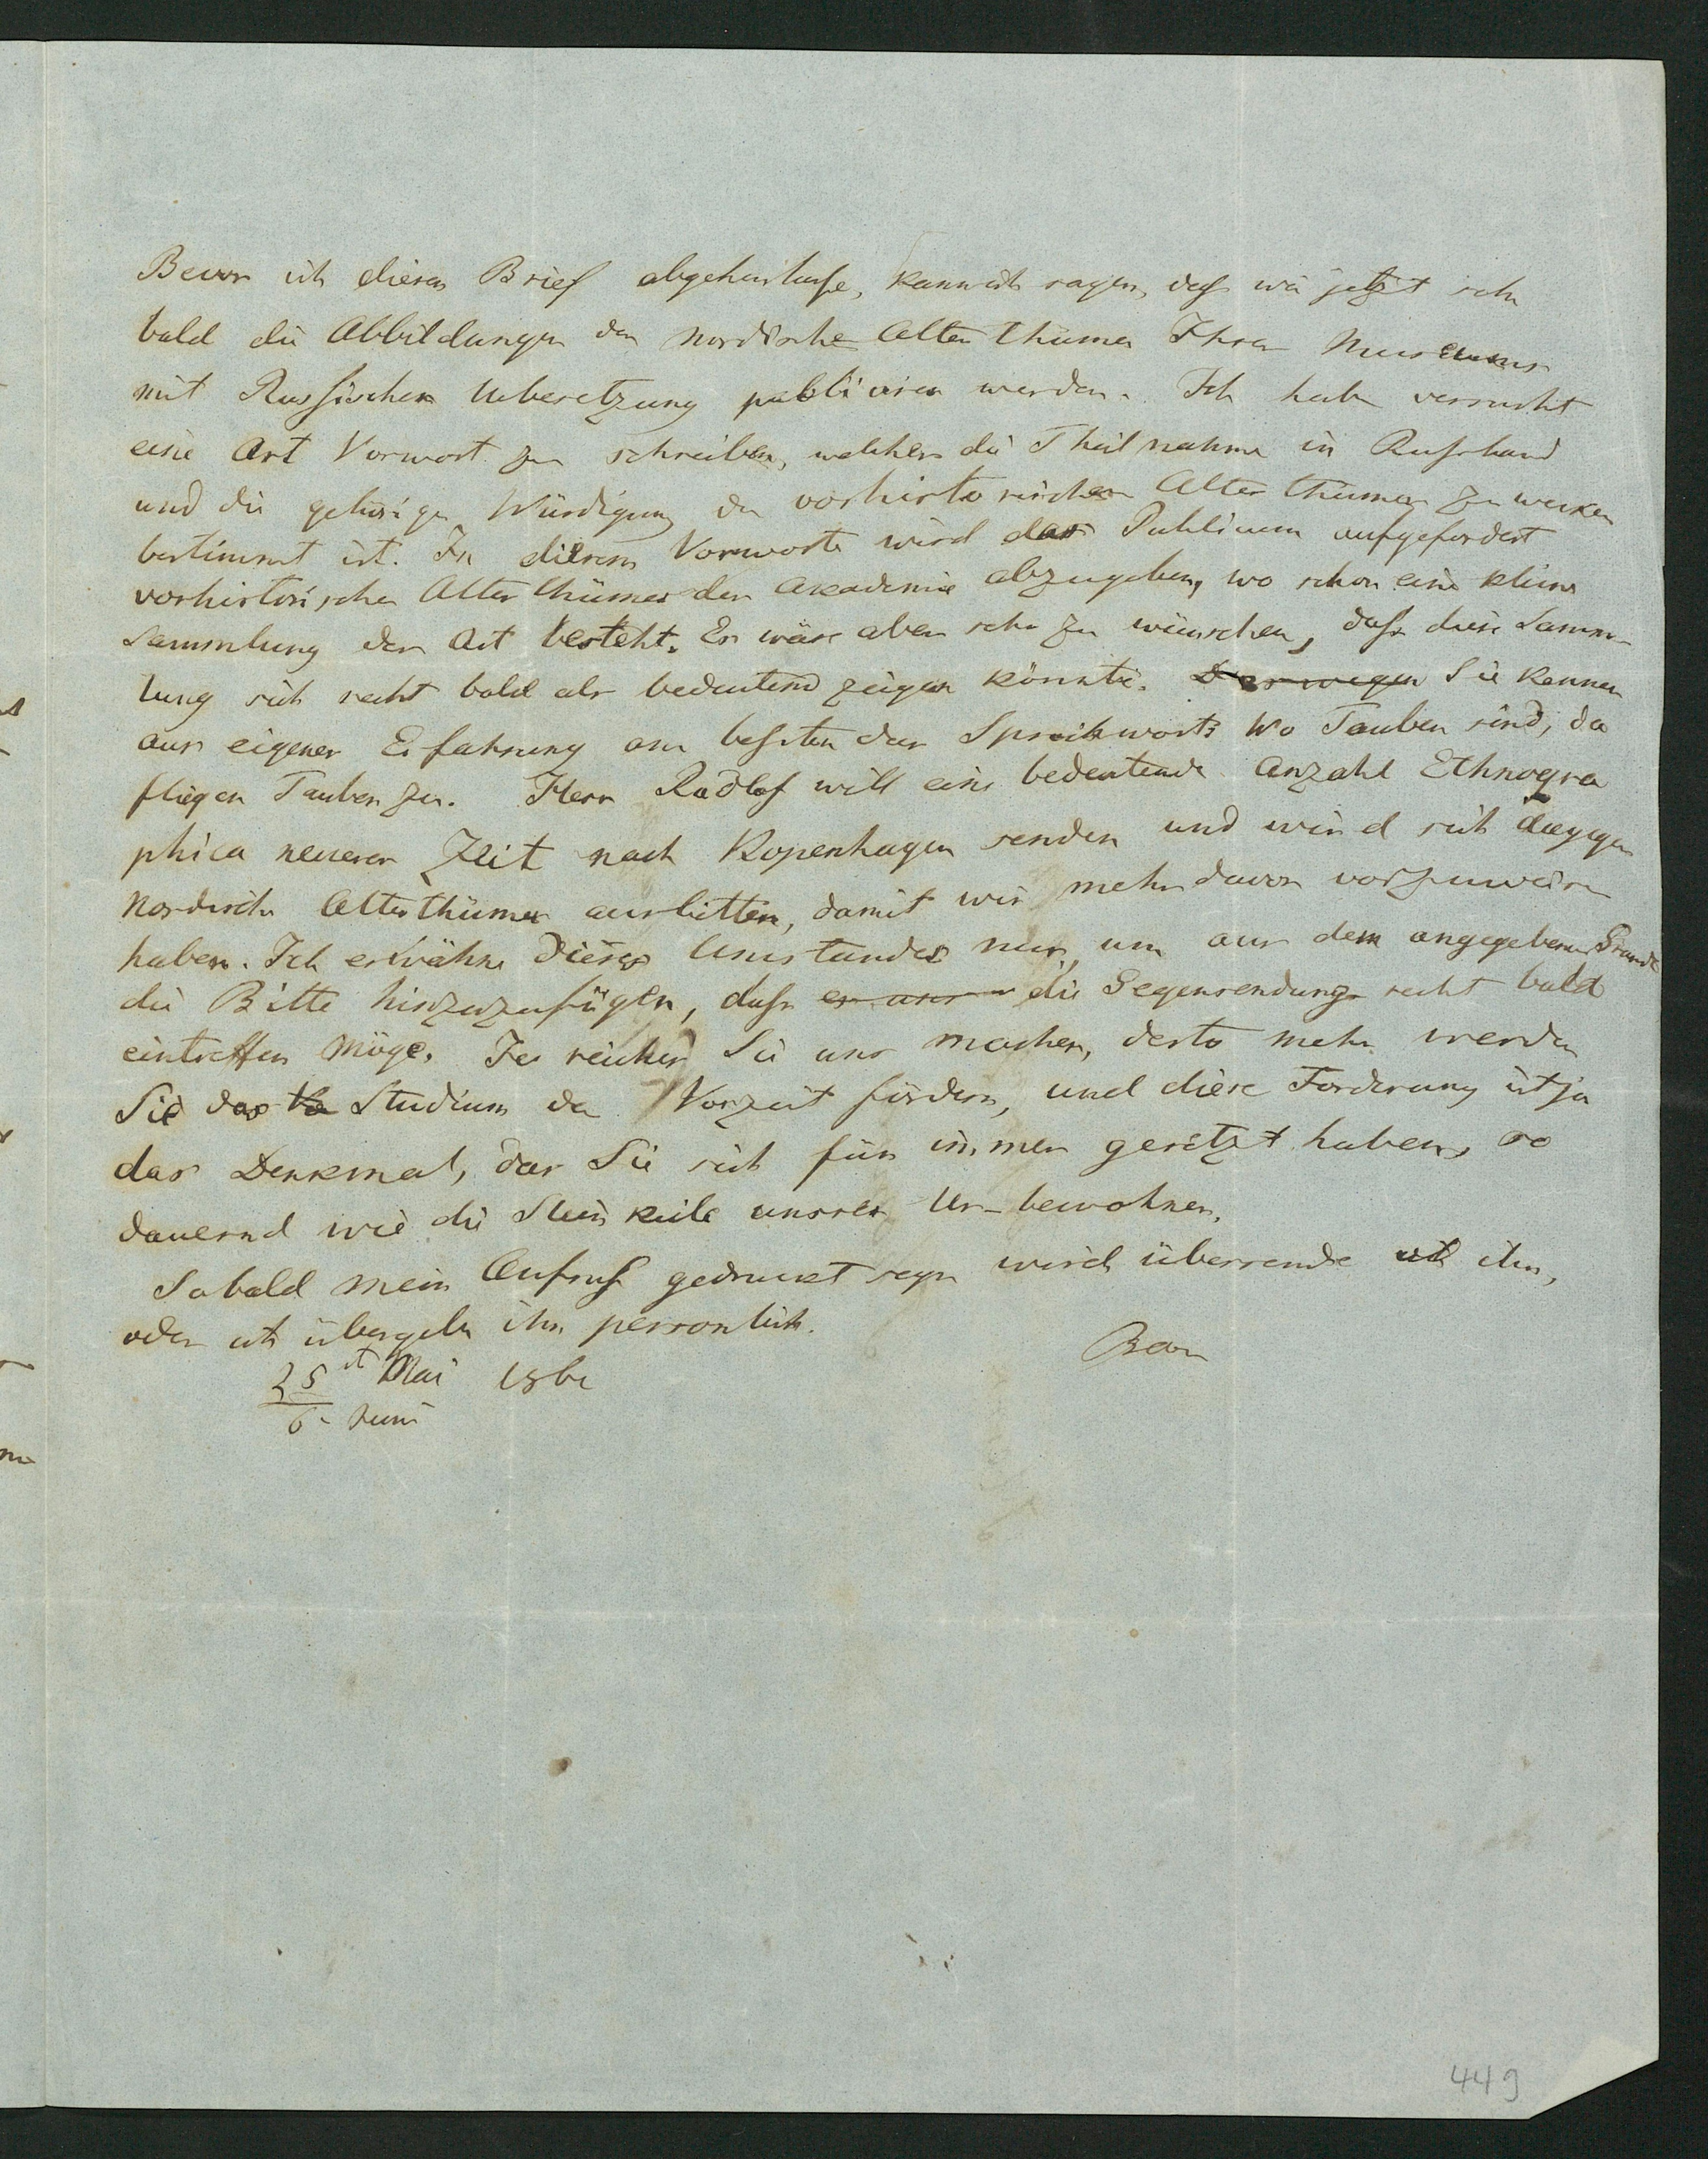 Bevor ich diesen Brief abgehen lasse, kann ich sagen, dass wir jetzt sehr
bald die Abbildungen der nordischen Alterthümer Ihres Museums
mit Russischer Uebersetzung publiciren werden. Ich habe versucht
eine Art Vorwort zu schreiben, welches die Theilnahme in Russland
und die gehörige Würdigung der vorhistorischen Alterthümer zu wecken
bestimmt ist. In diesem Vorworte wird das Publicum aufgefordert
vorhistorische Alterthümer der Academie abzugeben, wo schon eine kleine
Sammlung der Art besteht. Es wäre aber sehr zu wünschen, dass diese Samm-
lung sich recht bald als bedeutend zeigen könnte. Deswegen Sie kennen
aus eigener Erfahrung am bessten das Sprichwort: Wo Tauben sind, da
fliegen Tauben zu. Herr Radlof will eine bedeutende Anzahl Ethnogra
phica neuerer Zeit nach Kopenhagen senden und wird sich dagegen
Nordische Alterthümer ausbitten, damit wir mehr davon vorzuweisen
haben. Ich erwähne dieses Umstandes nur, um aus dem angegebenen Grunde
die Bitte hinzuzufügen, dass die Gegensendung recht bald
eintreffen möge. Je reicher Sie uns machen, desto mehr werden
Sie das Studium der Vorzeit fördern, und diese Forderung ist ja
das Denkmal, das Sie sich für immer gesetzt haben, so
dauernd wie die Steinkeile unsrer Ur-bewohner.
Sobald mein Aufruf gedruckt seyn wird übersende ich ihn,
oder ich übergebe ihn personlich.
Baer
25st Mai 186
6. Juni
449